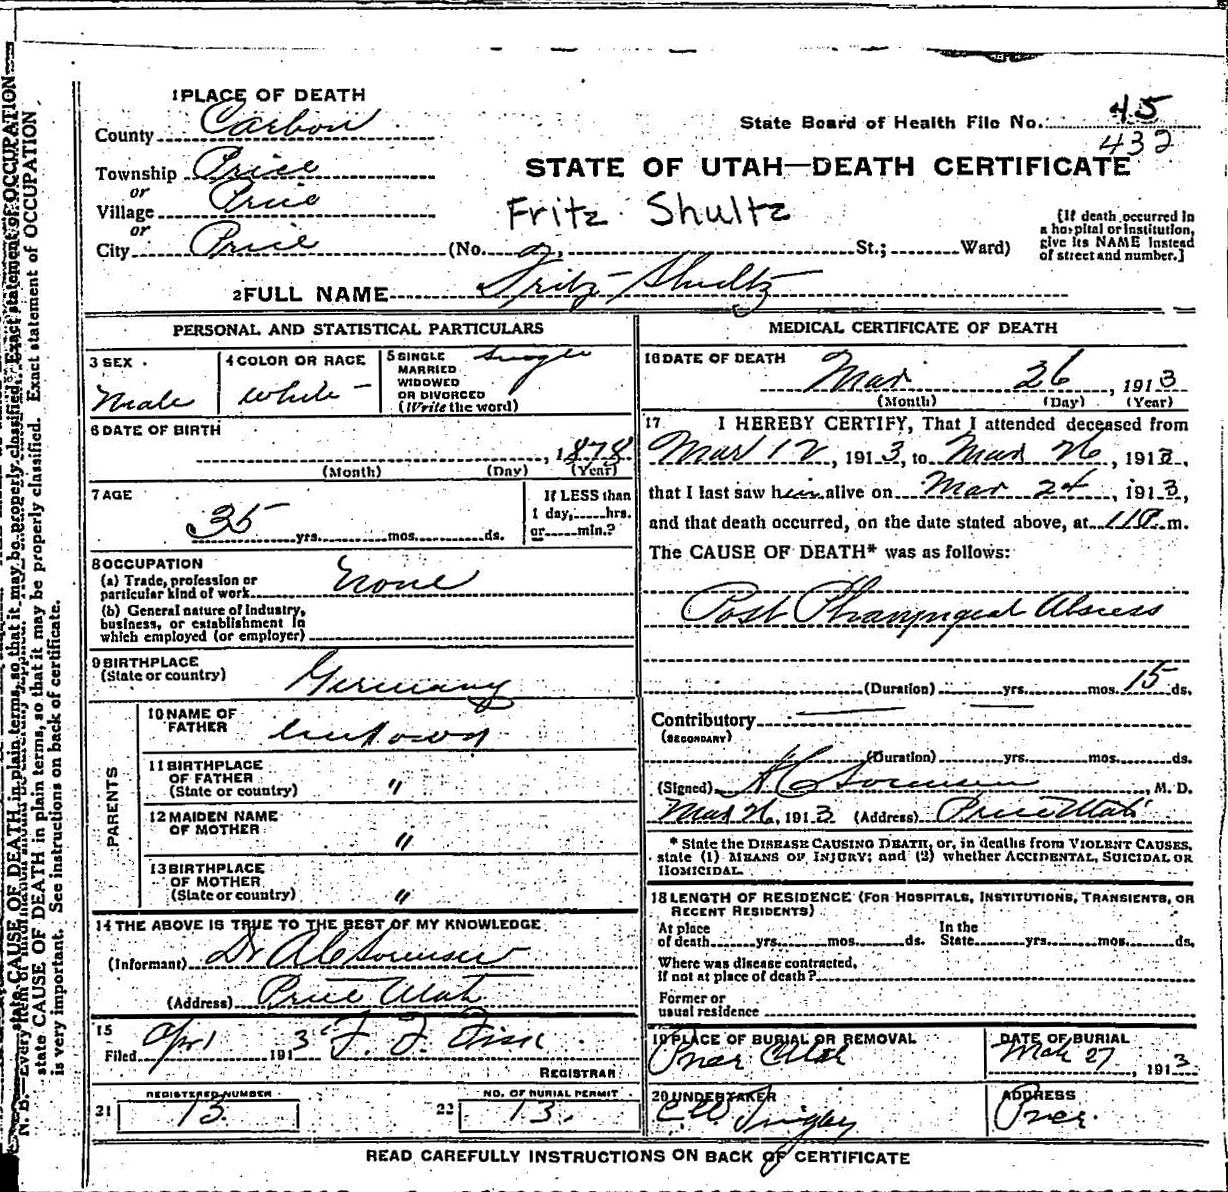 1 PLACE OF DEATH
County Carbon
State Board of Health File No. 45
432
Township Price
STATE OF UTAH—DEATH CERTIFICATE
or
Village Price
Fritz Shultz
or
City Price (No. St.; Ward)
[If death occurred in
a hospital or institution,
give its NAME instead
of street and number.]
2 FULL NAME Fritz Shultz
PERSONAL AND STATISTICAL PARTICULARS
3 SEX
Male
4 COLOR OR RACE
White
5 SINGLE
MARRIED
WIDOWED
OR DIVORCED
(Write the word)
Single
6 DATE OF BIRTH
, 1878
(Month) (Day) (Year)
7 AGE
35 yrs. mos. ds.
If LESS than
1 day, hrs.
or min.?
8 OCCUPATION
(a) Trade, profession or
particular kind of work None
(b) General nature of industry,
business, or establishment in
which employed (or employer)
9 BIRTHPLACE
(State or country) Germany
PARENTS
10 NAME OF
FATHER unknown
11 BIRTHPLACE
OF FATHER
(State or country) "
12 MAIDEN NAME
OF MOTHER "
13 BIRTHPLACE
OF MOTHER
(State or country) "
14 THE ABOVE IS TRUE TO THE BEST OF MY KNOWLEDGE
(Informant) Dr Sorensen
(Address) Price Utah
15
Filed Apr 1 1913 F. F. Fisk
REGISTRAR
21 REGISTERED NUMBER
13.
22 NO. OF BURIAL PERMIT
13.
MEDICAL CERTIFICATE OF DEATH
16 DATE OF DEATH
Mar 26, 1913
(Month) (Day) (Year)
17 I HEREBY CERTIFY, That I attended deceased from
Mar 12, 1913, to Mar 26, 1913,
that I last saw him alive on Mar 24, 1913,
and that death occurred, on the date stated above, at m.
The CAUSE OF DEATH* was as follows:
Post Pharyngeal Abscess
(Duration) yrs. mos. 15 ds.
Contributory
(SECONDARY)
(Duration) yrs. mos. ds.
(Signed) Sorensen, M. D.
Mar 26, 1913 (Address) Price Utah
* State the DISEASE CAUSING DEATH, or, in deaths from VIOLENT CAUSES,
state (1) MEANS OF INJURY; and (2) whether ACCIDENTAL, SUICIDAL OR
HOMICIDAL.
18 LENGTH OF RESIDENCE (FOR HOSPITALS, INSTITUTIONS, TRANSIENTS, OR
RECENT RESIDENTS)
At place
of death yrs. mos. ds.
In the
State yrs. mos. ds.
Where was disease contracted,
if not at place of death?
Former or
usual residence
19 PLACE OF BURIAL OR REMOVAL
Price Utah
DATE OF BURIAL
Mch 27, 1913
20 UNDERTAKER
ADDRESS
Price.
READ CAREFULLY INSTRUCTIONS ON BACK OF CERTIFICATE
N. B.—Every item of
state CAUSE OF DEATH in plain terms, so that it may be properly classified. Exact statement of OCCUPATION
is very important. See instructions on back of certificate.